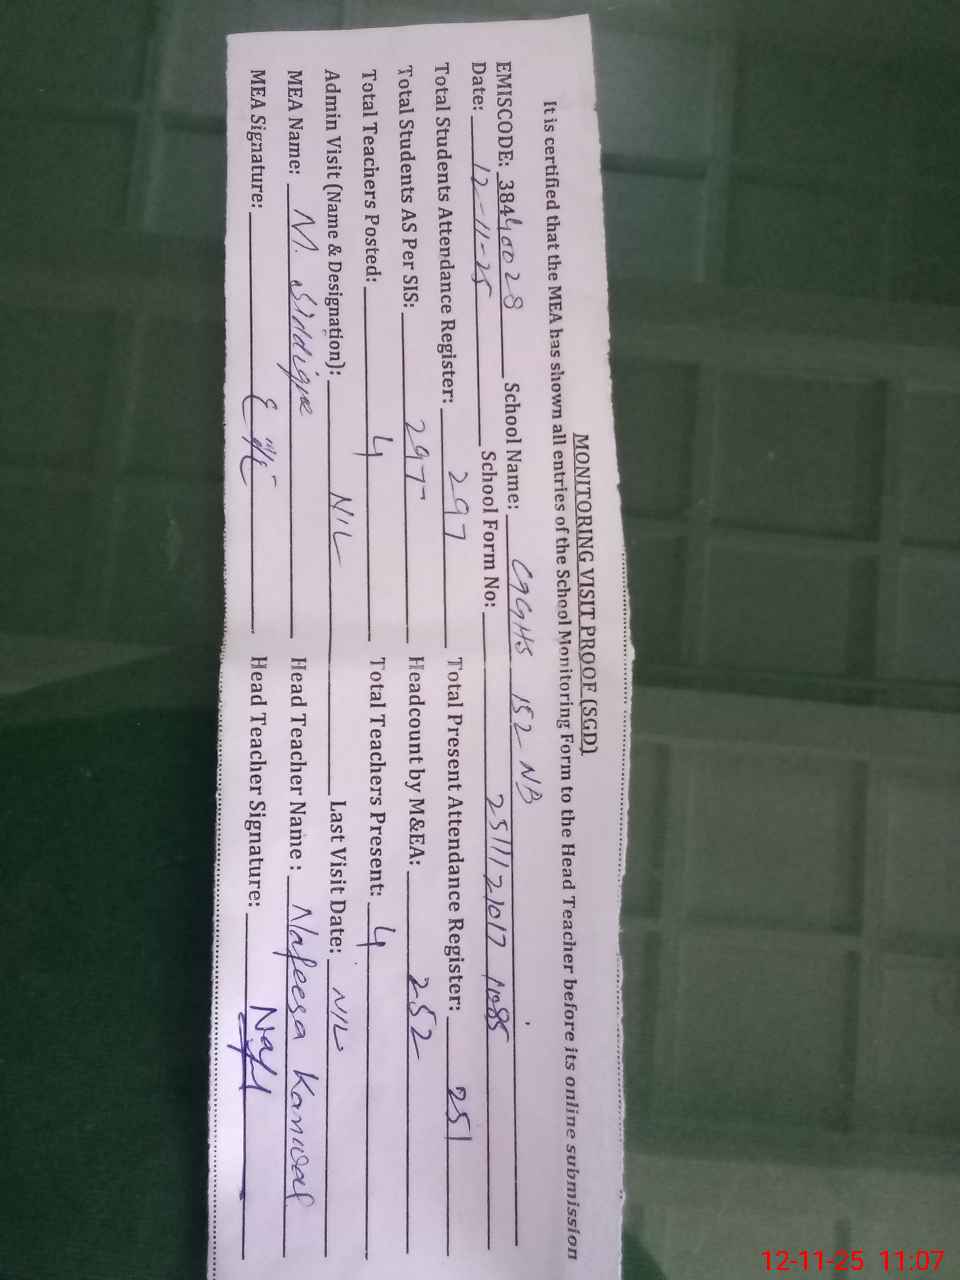 MONITORING VISIT PROOF (SGD)
It is certified that the MEA has shown all entries of the School Monitoring Form to the Head Teacher before its online submission
EMISCODE: 38440028 School Name: GGHS 152-NB
Date: 12-11-25 School Form No: 2511121017
Total Students Attendance Register: 297 Total Present Attendance Register: 251
Total Students AS Per SIS: 297 Headcount by M&EA: 252
Total Teachers Posted: 4 Total Teachers Present: 4
Admin Visit (Name & Designation): NIL Last Visit Date: NIL
MEA Name: M. Siddique Head Teacher Name: Nafeesa Kanwal
MEA Signature: Head Teacher Signature:
12-11-25 11:07